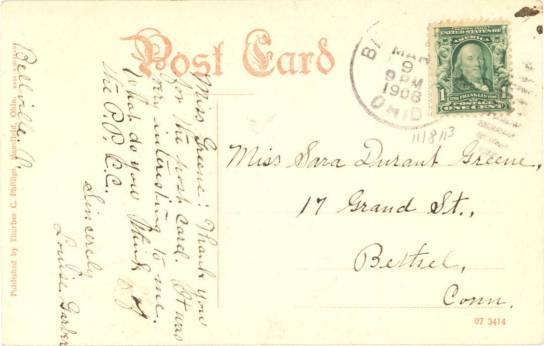 Post Card
MAR
9
9 PM
1908
OHIO
UNITED STATES OF
FRANKLIN
POSTAGE
ONE CENT
11/8/13
Miss Sara Durant Greene,
17 Grand St.,
Bethel,
Conn.
Bellville, O.
Miss Greene: Thank you
for the post card. It was
very interesting to me.
What do you think of
the P.P.C.C.
Sincerely
Louise Garber
Published by Thurber C. Phillips, Mansfield, Ohio.
07 3414